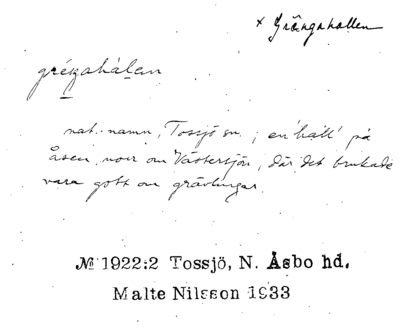 × Grängahallen
gréŋahálæn
nat. namn, Tossjö sn; en 'hall' på
Åsen norr om Västersjön, där det brukade
vara gott om grävlingar.
№ 1922:2 Tossjö, N. Åsbo hd.
Malte Nilsson 1933